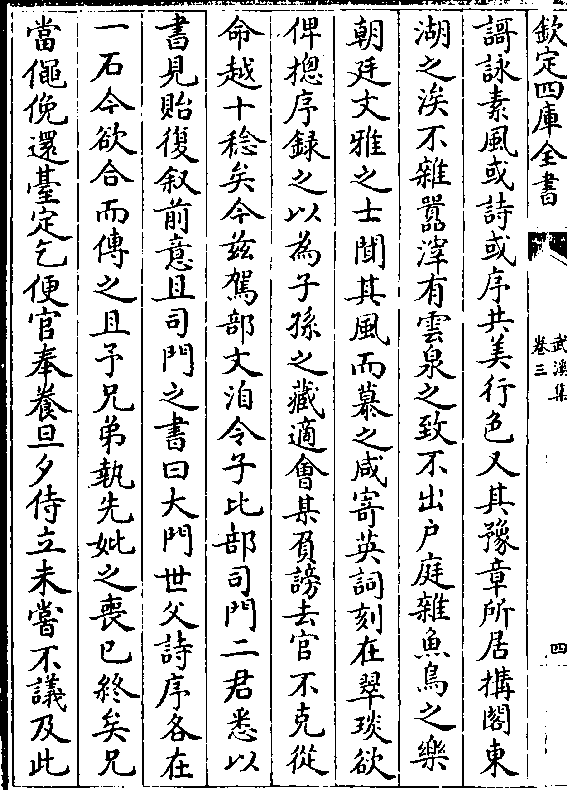 欽定四庫全書
武溪集
卷三
四
謌詠素風或詩或序共美行色又其豫章所居搆閣東
湖之涘不雜囂滓有雲泉之致不出戶庭雜魚鳥之樂
朝廷文雅之士聞其風而慕之咸寄英詞刻在翠琰欲
俾揔序録之以為子孫之藏適會某負謗去官不克從
命越十稔矣今兹駕部丈洎令子比部司門二君悉以
書見貽復叙前意且司門之書曰大門世父詩序各在
一石今欲合而傳之且予兄弟執先妣之喪已終矣兄
當僶俛還臺定乞便官奉養旦夕侍立未嘗不議及此